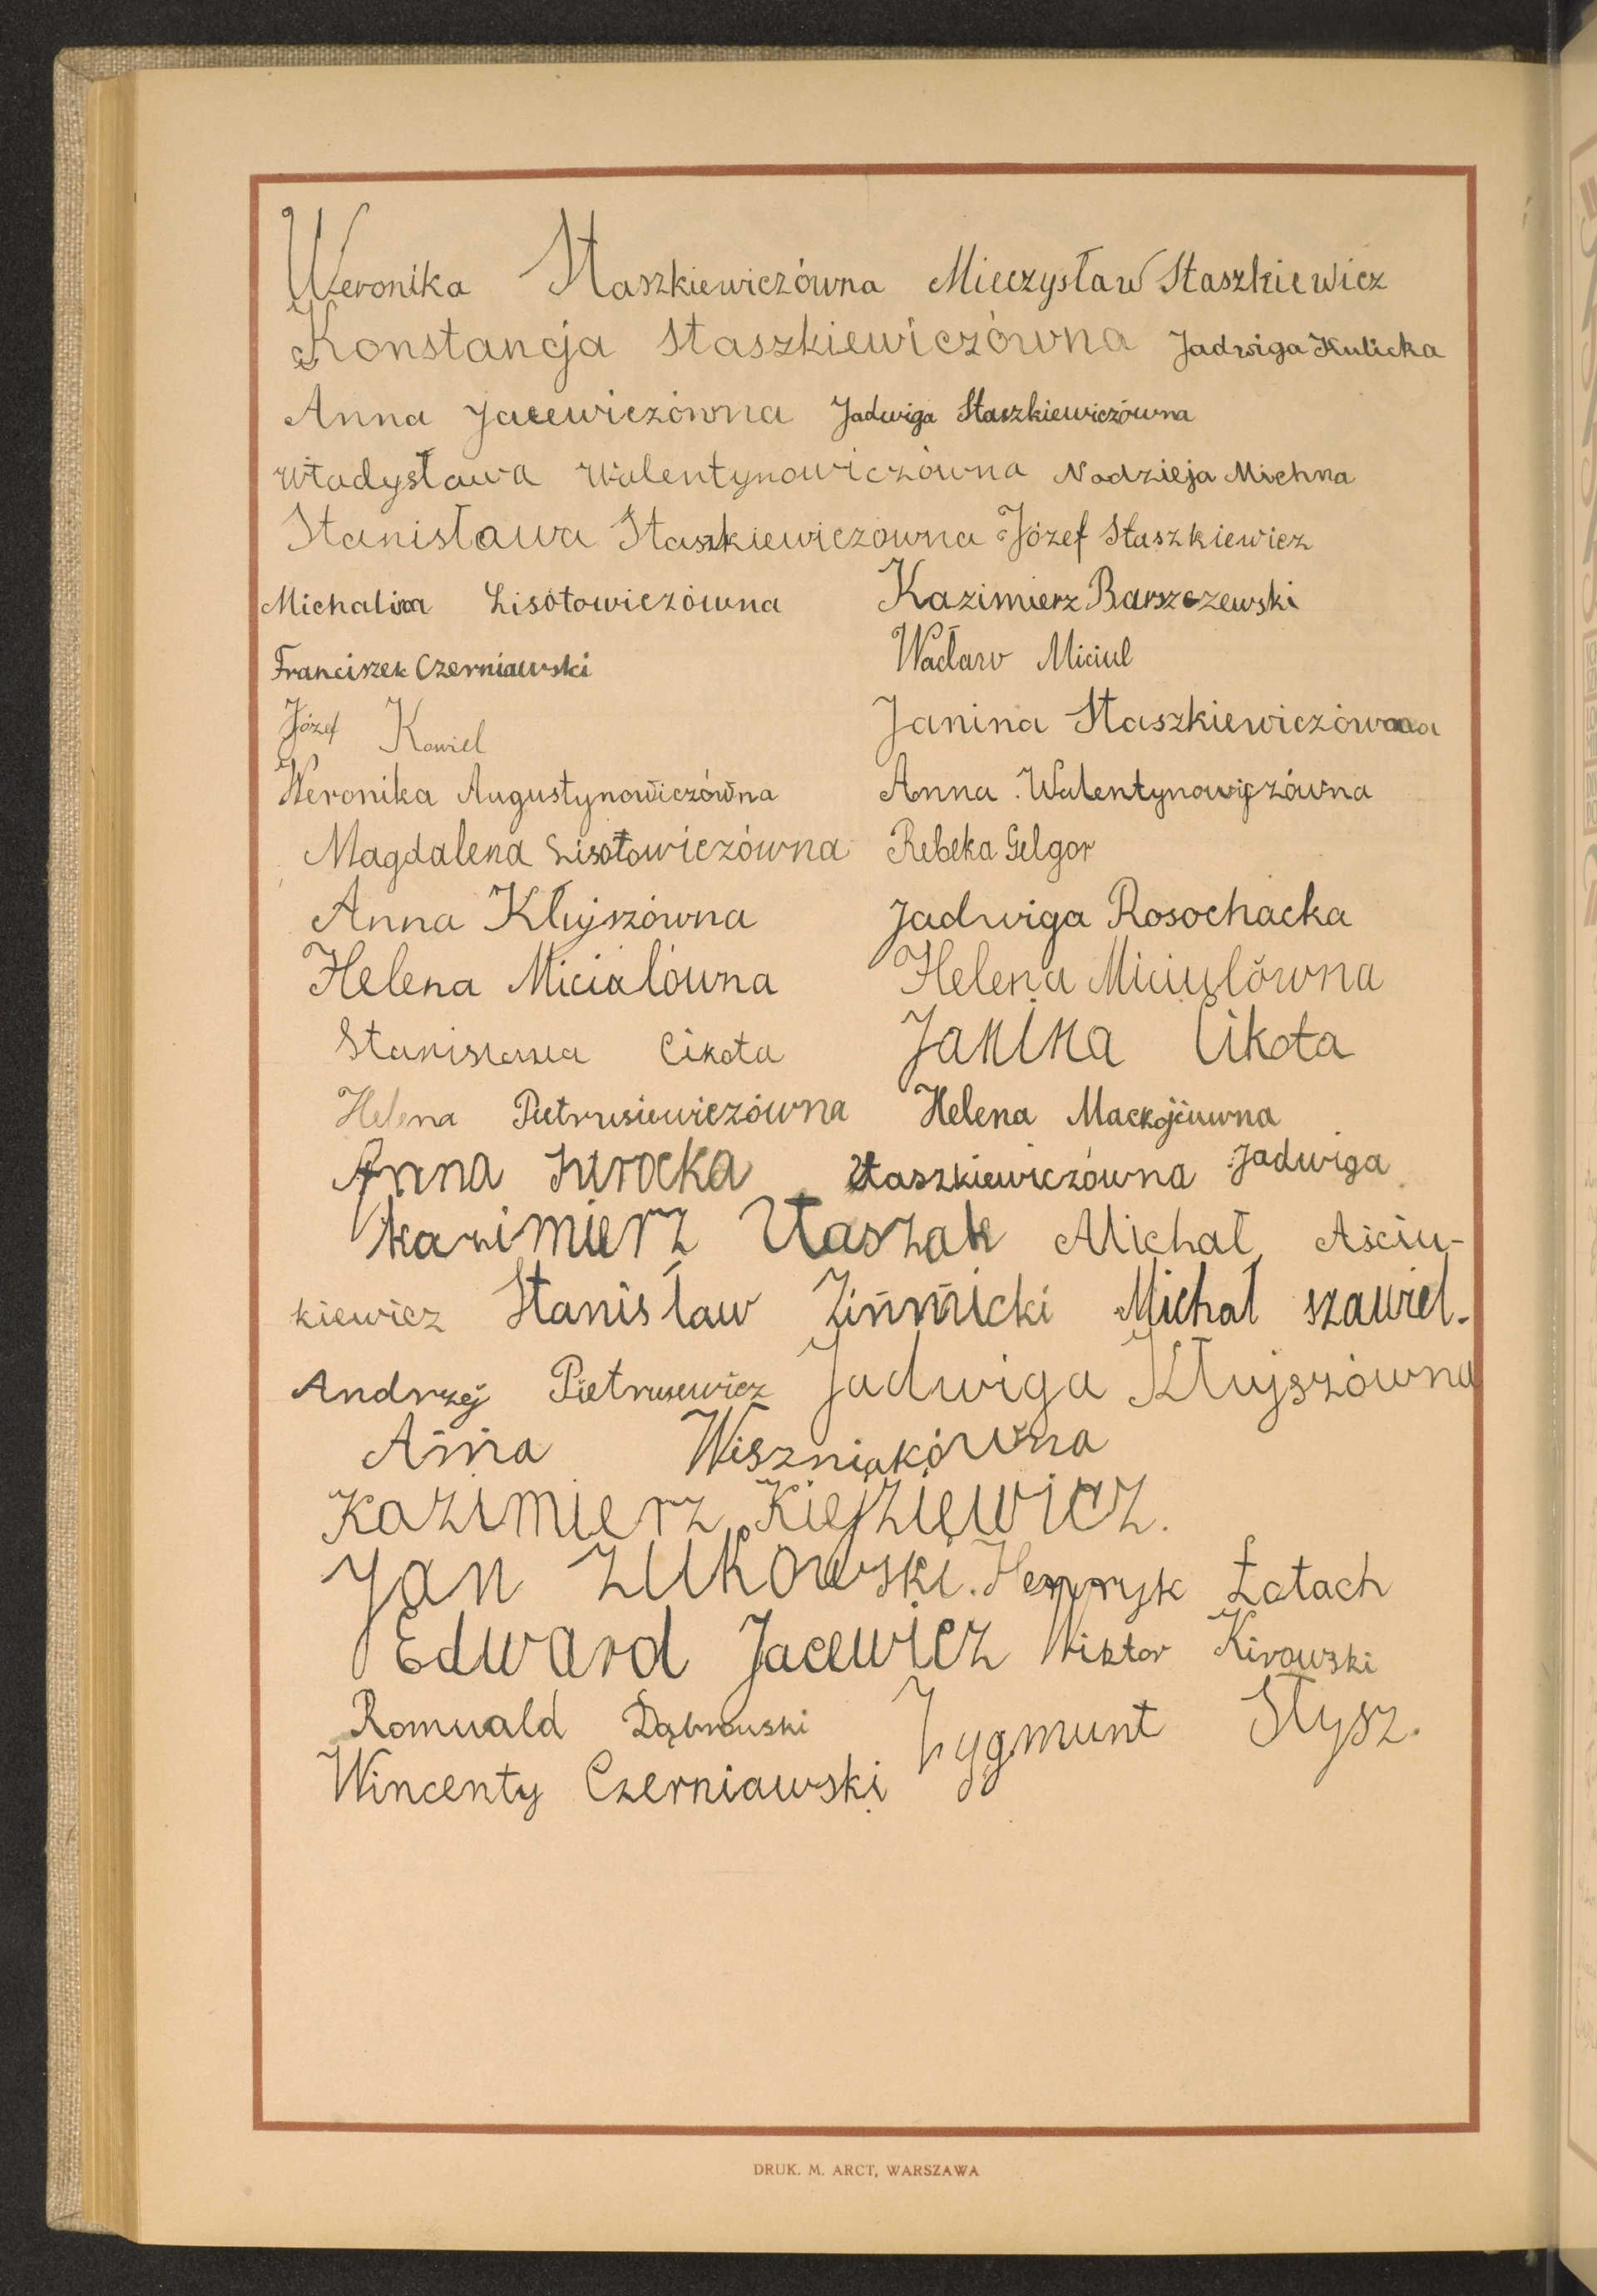 Weronika Staszkiewiczówna Mieczysław Staszkiewicz
Konstancja Staszkiewiczówna Jadwiga Kulicka
Anna Jacewiczówna Jadwiga Staszkiewiczówna
Władysława Walentynowiczówna Nadzieja Michna
Stanisława Staszkiewiczówna Józef Staszkiewicz
Michalina Lisótowiczówna Kazimierz Barszczewski
Franciszek Czerniawski Wacław Miciul
Józef Kowiel Janina Staszkiewiczówna
Weronika Augustynowiczówna Anna Walentynowiczówna
Magdalena Lisotowiczówna Rebeka Gelgor
Anna Kłujszówna Jadwiga Rosochacka
Helena Micialówna Helena Miciulówna
Stanisława Cikota Janina Cikota
Helena Pietrusiewiczówna Helena Mackojćuwna
Anna Staszkiewiczówna Jadwiga
Kazimierz Staszak Michał Aściu-
kiewicz Stanisław Michał szawiel.
Andrzej Pietrusewicz Jadwiga Kłujszówna
Anna Wiszniakówna
Kazimierz Kiejziewicz.
Jan Żukowski. Henryk Łatach
Edward Jacewicz Wiktor Kirowski
Romuald Dąbrowski Zygmunt Stysz.
Wincenty Czerniawski
DRUK. M. ARCT, WARSZAWA